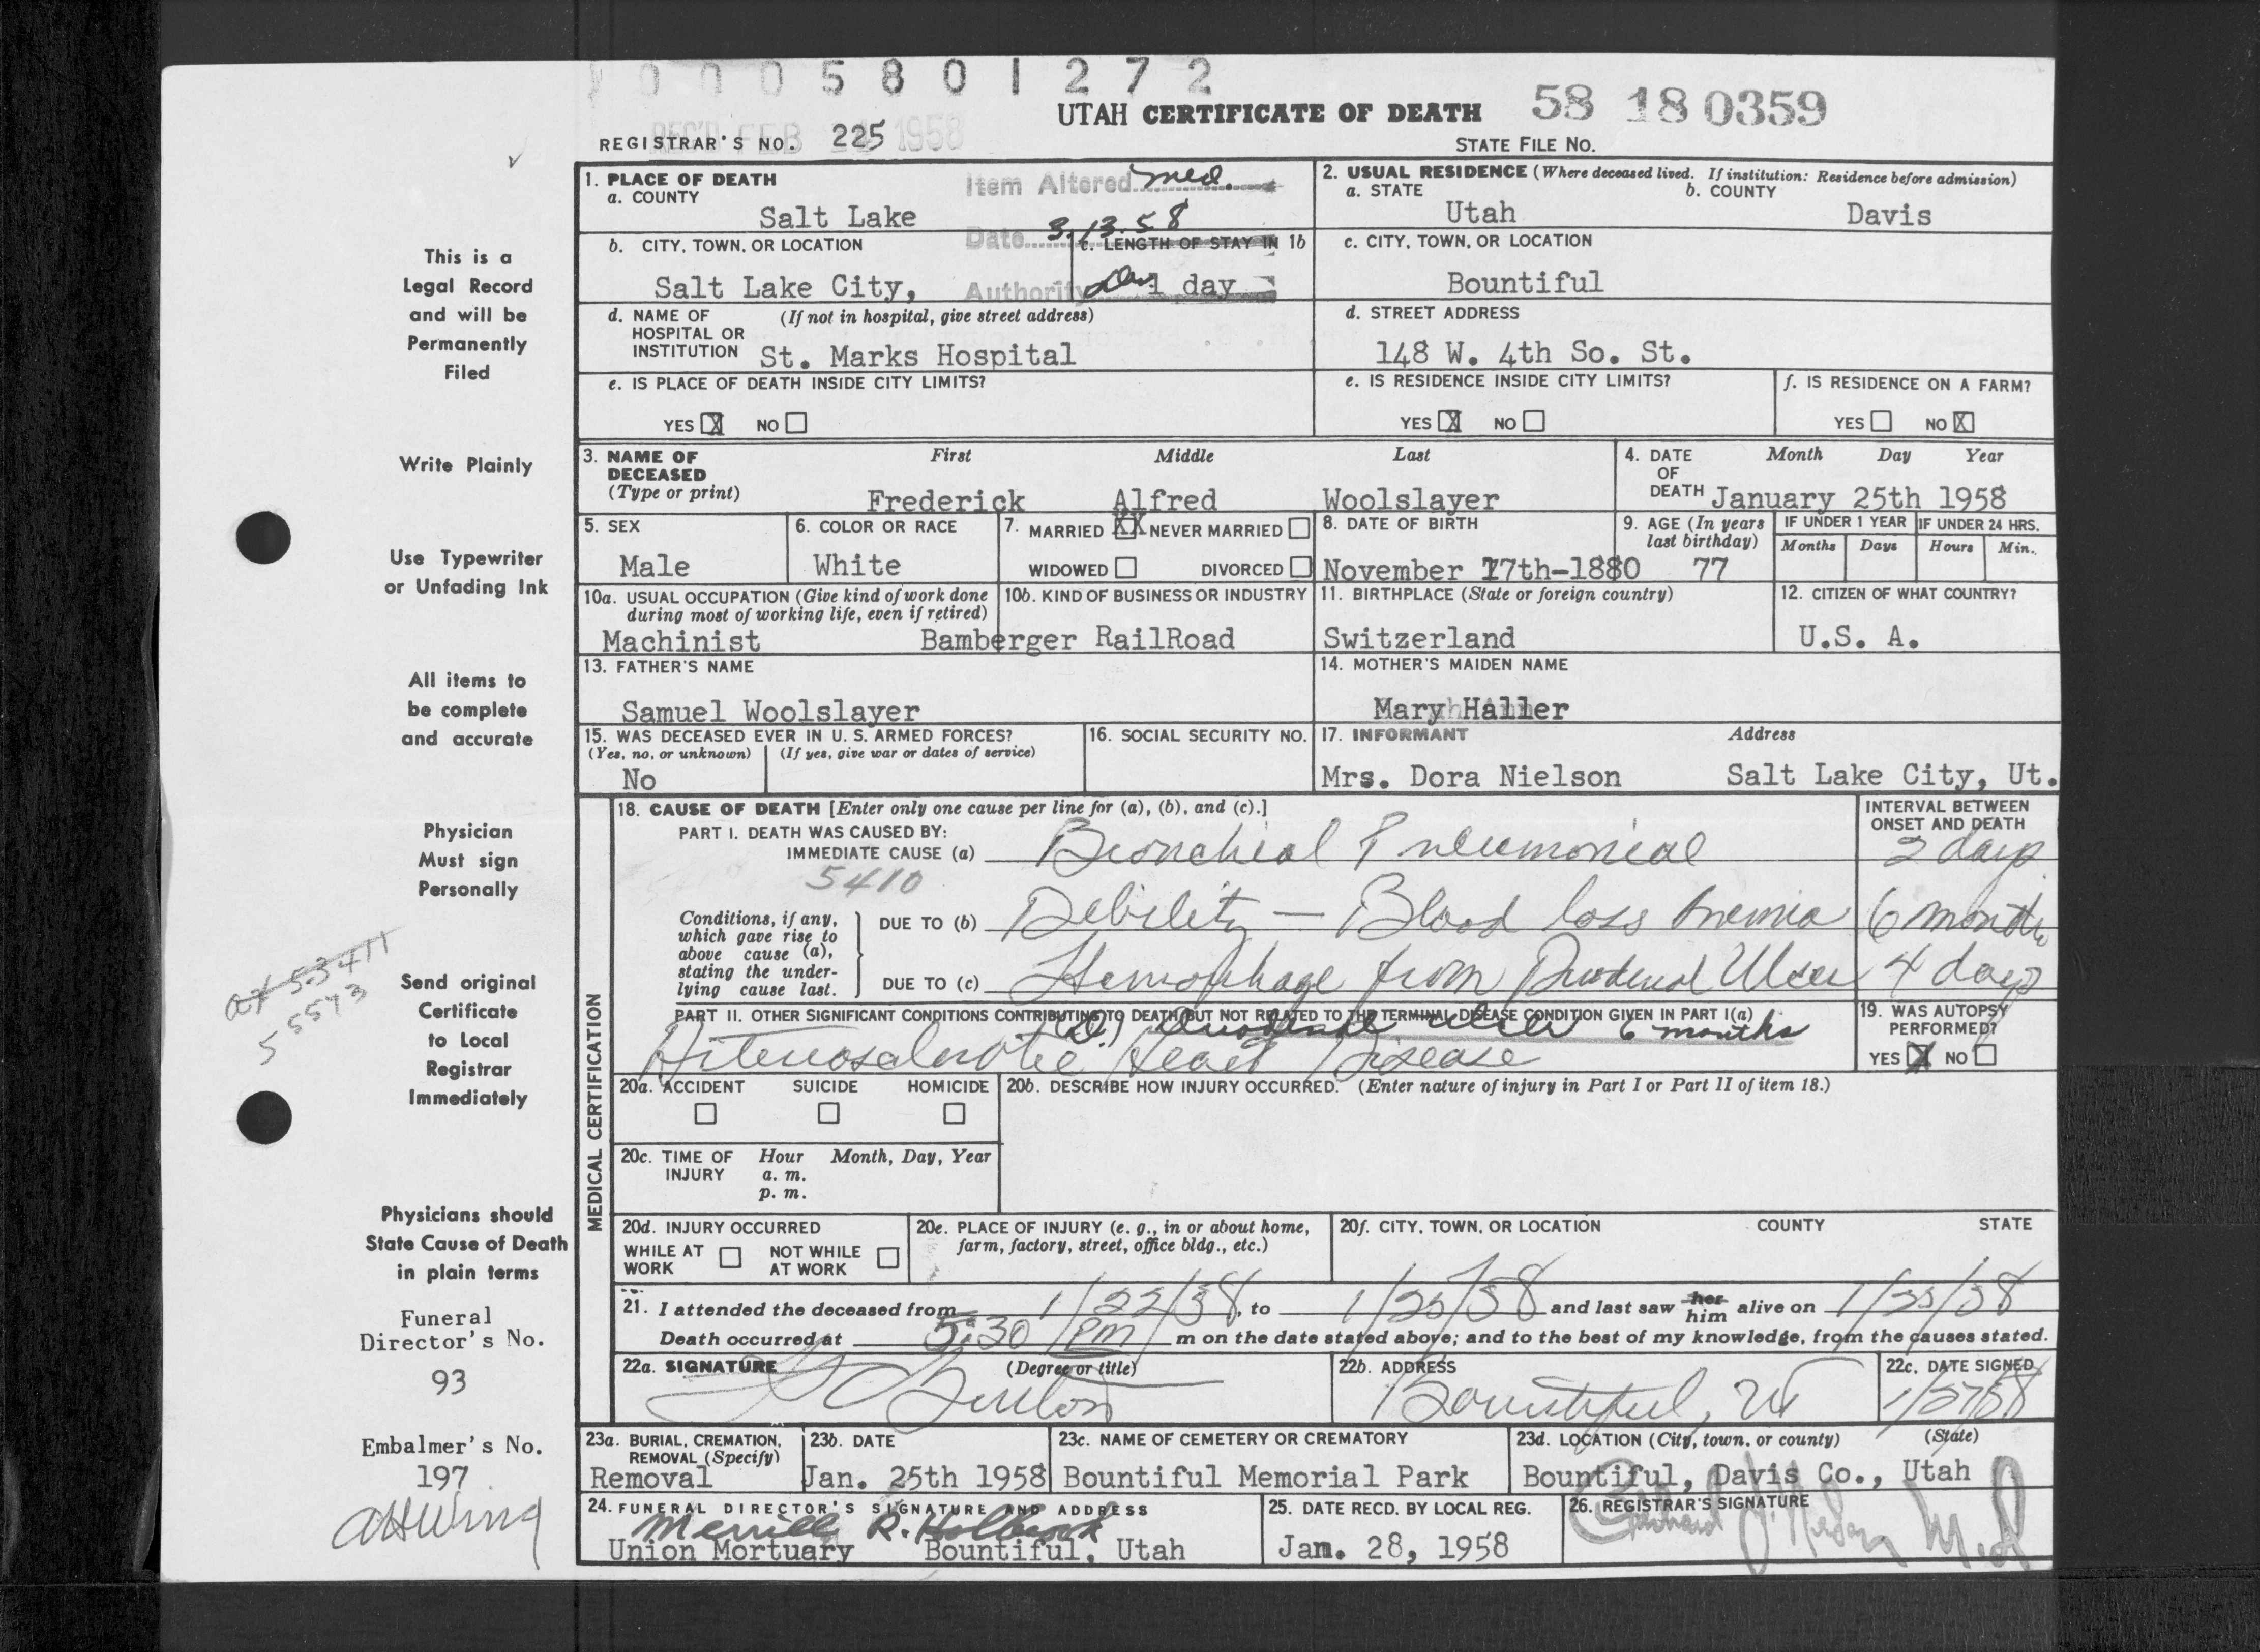 0005801272
UTAH CERTIFICATE OF DEATH 58 18 0359
REC'D FEB 1958
REGISTRAR'S NO. 225 STATE FILE NO.
This is a
Legal Record
and will be
Permanently
Filed
Write Plainly
Use Typewriter
or Unfading Ink
All items to
be complete
and accurate
Physician
Must sign
Personally
Send original
Certificate
to Local
Registrar
Immediately
Physicians should
State Cause of Death
in plain terms
Funeral
Director's No.
93
Embalmer's No.
197
1. PLACE OF DEATH
a. COUNTY
Salt Lake
Item Altered med.
Date 3.13.58
Authority
b. CITY, TOWN, OR LOCATION
Salt Lake City,
c. LENGTH OF STAY IN 1b
1 day
d. NAME OF HOSPITAL OR INSTITUTION (If not in hospital, give street address)
St. Marks Hospital
e. IS PLACE OF DEATH INSIDE CITY LIMITS?
YES X NO
2. USUAL RESIDENCE (Where deceased lived. If institution: Residence before admission)
a. STATE b. COUNTY
Utah Davis
c. CITY, TOWN, OR LOCATION
Bountiful
d. STREET ADDRESS
148 W. 4th So. St.
e. IS RESIDENCE INSIDE CITY LIMITS?
YES X NO
f. IS RESIDENCE ON A FARM?
YES NO X
3. NAME OF DECEASED (Type or print) First Middle Last
Frederick Alfred Woolslayer
4. DATE OF DEATH Month Day Year
January 25th 1958
5. SEX
Male
6. COLOR OR RACE
White
7. MARRIED XX NEVER MARRIED
WIDOWED DIVORCED
8. DATE OF BIRTH
November 17th-1880
9. AGE (In years last birthday)
77
IF UNDER 1 YEAR IF UNDER 24 HRS.
Months Days Hours Min.
10a. USUAL OCCUPATION (Give kind of work done during most of working life, even if retired)
Machinist
10b. KIND OF BUSINESS OR INDUSTRY
Bamberger RailRoad
11. BIRTHPLACE (State or foreign country)
Switzerland
12. CITIZEN OF WHAT COUNTRY?
U.S. A.
13. FATHER'S NAME
Samuel Woolslayer
14. MOTHER'S MAIDEN NAME
Mary Haller
15. WAS DECEASED EVER IN U. S. ARMED FORCES?
(Yes, no, or unknown) (If yes, give war or dates of service)
No
16. SOCIAL SECURITY NO.
17. INFORMANT Address
Mrs. Dora Nielson Salt Lake City, Ut.
MEDICAL CERTIFICATION
18. CAUSE OF DEATH [Enter only one cause per line for (a), (b), and (c).]
INTERVAL BETWEEN ONSET AND DEATH
PART I. DEATH WAS CAUSED BY:
IMMEDIATE CAUSE (a) Bronchial Pneumonial 2 days
5410
Conditions, if any, which gave rise to above cause (a), stating the underlying cause last.
DUE TO (b) Debility — Blood loss Anemia 6 months
DUE TO (c) Hemorhage from Duodenal Ulcer 4 days
PART II. OTHER SIGNIFICANT CONDITIONS CONTRIBUTING TO DEATH BUT NOT RELATED TO THE TERMINAL DISEASE CONDITION GIVEN IN PART I(a)
(D.) Duodenal ulcer 6 months
Arteriosclerotic Heart Disease
19. WAS AUTOPSY PERFORMED?
YES X NO
20a. ACCIDENT SUICIDE HOMICIDE
20b. DESCRIBE HOW INJURY OCCURRED. (Enter nature of injury in Part I or Part II of item 18.)
20c. TIME OF INJURY Hour Month, Day, Year
a. m.
p. m.
20d. INJURY OCCURRED
WHILE AT WORK NOT WHILE AT WORK
20e. PLACE OF INJURY (e. g., in or about home, farm, factory, street, office bldg., etc.)
20f. CITY, TOWN, OR LOCATION COUNTY STATE
21. I attended the deceased from 1/22/58, to 1/25/58 and last saw her him alive on 1/25/58
Death occurred at 5:30 PM m on the date stated above; and to the best of my knowledge, from the causes stated.
22a. SIGNATURE (Degree or title)
22b. ADDRESS
Bountiful, Ut
22c. DATE SIGNED
1/27/58
23a. BURIAL, CREMATION, REMOVAL (Specify)
Removal
23b. DATE
Jan. 25th 1958
23c. NAME OF CEMETERY OR CREMATORY
Bountiful Memorial Park
23d. LOCATION (City, town, or county) (State)
Bountiful, Davis Co., Utah
24. FUNERAL DIRECTOR'S SIGNATURE AND ADDRESS
Merrill R. Holbrook
Union Mortuary Bountiful, Utah
25. DATE RECD. BY LOCAL REG.
Jan. 28, 1958
26. REGISTRAR'S SIGNATURE